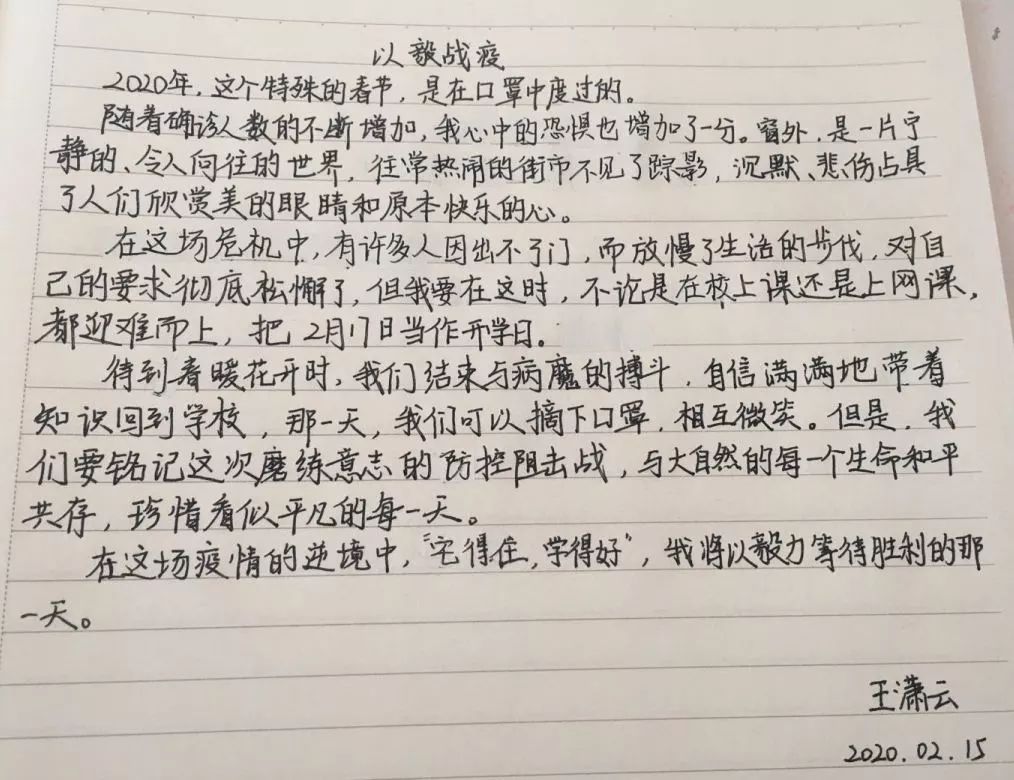 以毅战疫
2020年,这个特殊的春节,是在口罩中度过的。
随着确诊人数的不断增加,我心中的恐惧也增加了一分。窗外,是一片宁
静的、令人向往的世界,往常热闹的街市不见了踪影,沉默、悲伤占具
了人们欣赏美的眼睛和原本快乐的心。
在这场危机中,有许多人因出不了门,而放慢了生活的步伐,对自
己的要求彻底松懈了,但我要在这时,不论是在校上课还是上网课,
都迎难而上,把2月17日当作开学日。
待到春暖花开时,我们结束与病魔的搏斗,自信满满地带着
知识回到学校,那一天,我们可以摘下口罩,相互微笑。但是,我
们要铭记这次磨练意志的防控阻击战,与大自然的每一个生命和平
共存,珍惜看似平凡的每一天。
在这场疫情的逆境中,“宅得住,学得好”,我将以毅力等待胜利的那
一天。
王潇云
2020.02.15